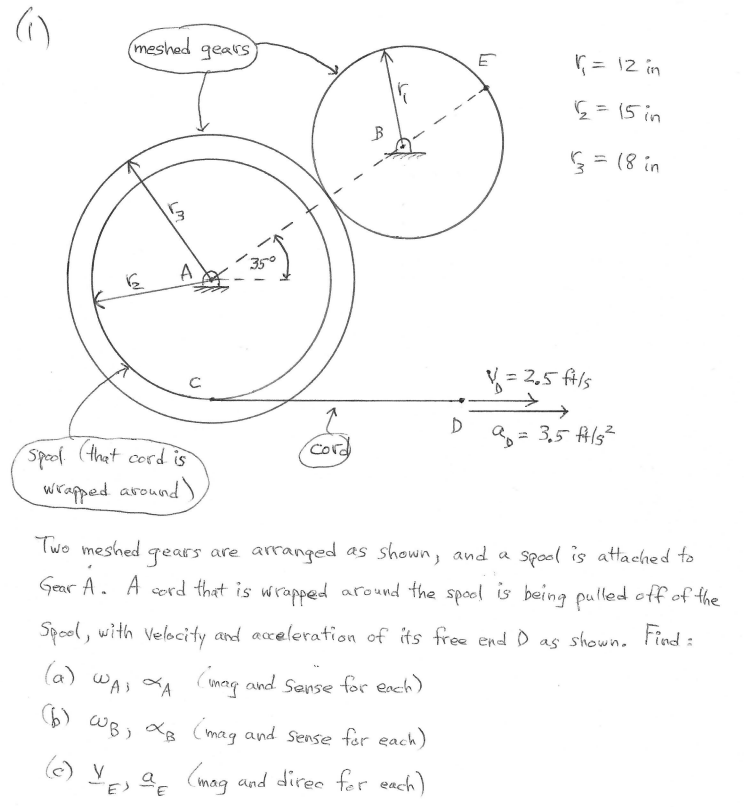 (1)
meshed gears
E
r₁ = 12 in
r₁
r₂ = 15 in
B
r₃ = 18 in
r₃
A
35°
r₂
C
V_D = 2.5 ft/s
D
a_D = 3.5 ft/s²
cord
Spool (that cord is
wrapped around)
Two meshed gears are arranged as shown, and a spool is attached to
Gear A. A cord that is wrapped around the spool is being pulled off of the
Spool, with velocity and acceleration of its free end D as shown. Find:
(a) ω_A, α_A (mag and sense for each)
(b) ω_B, α_B (mag and sense for each)
(c) V_E, a_E (mag and direc for each)